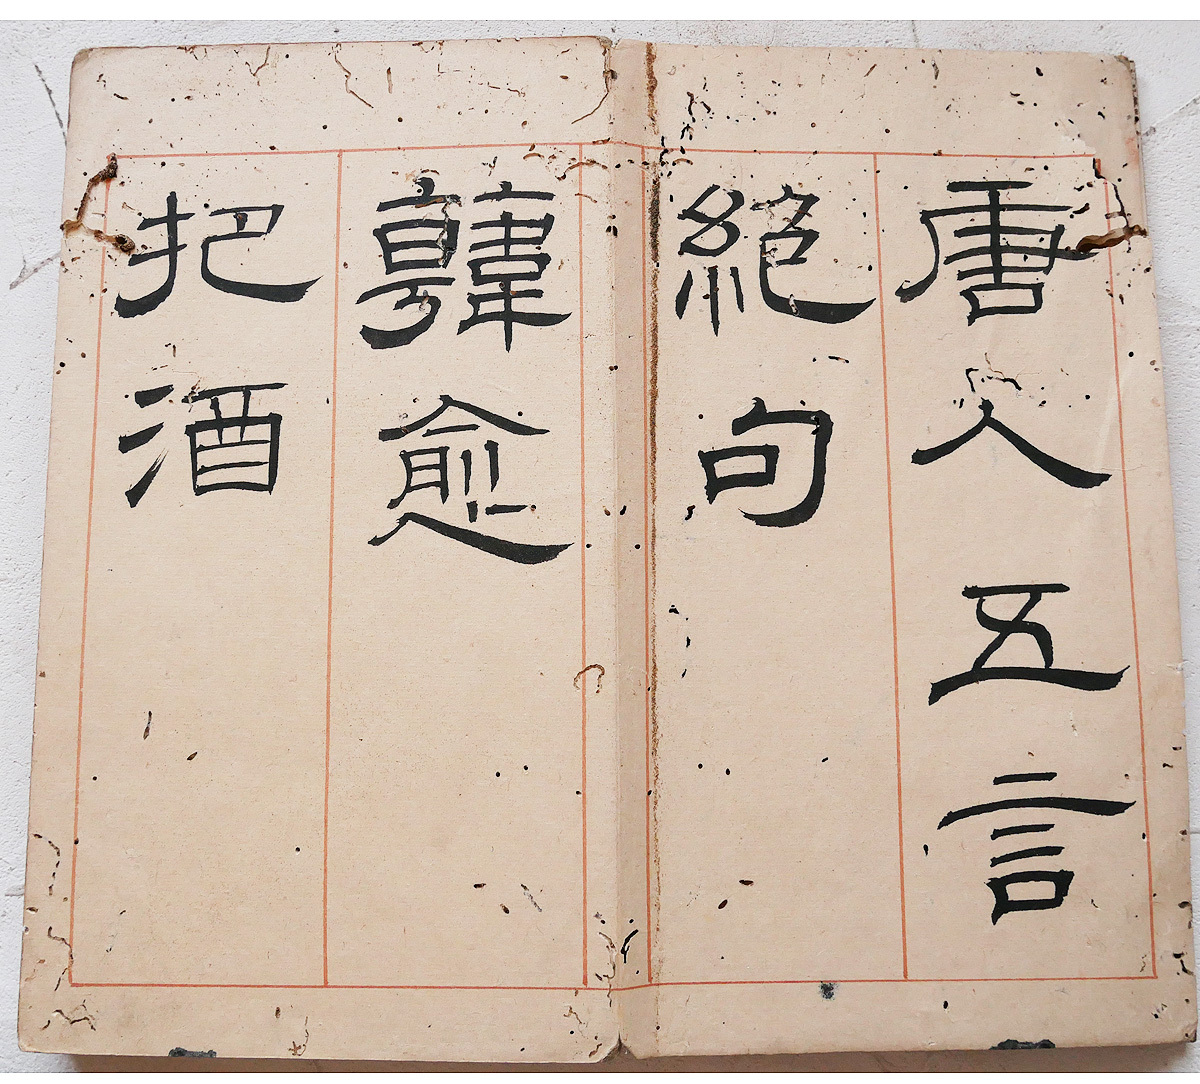 唐人五言
絕句
韓愈
把酒